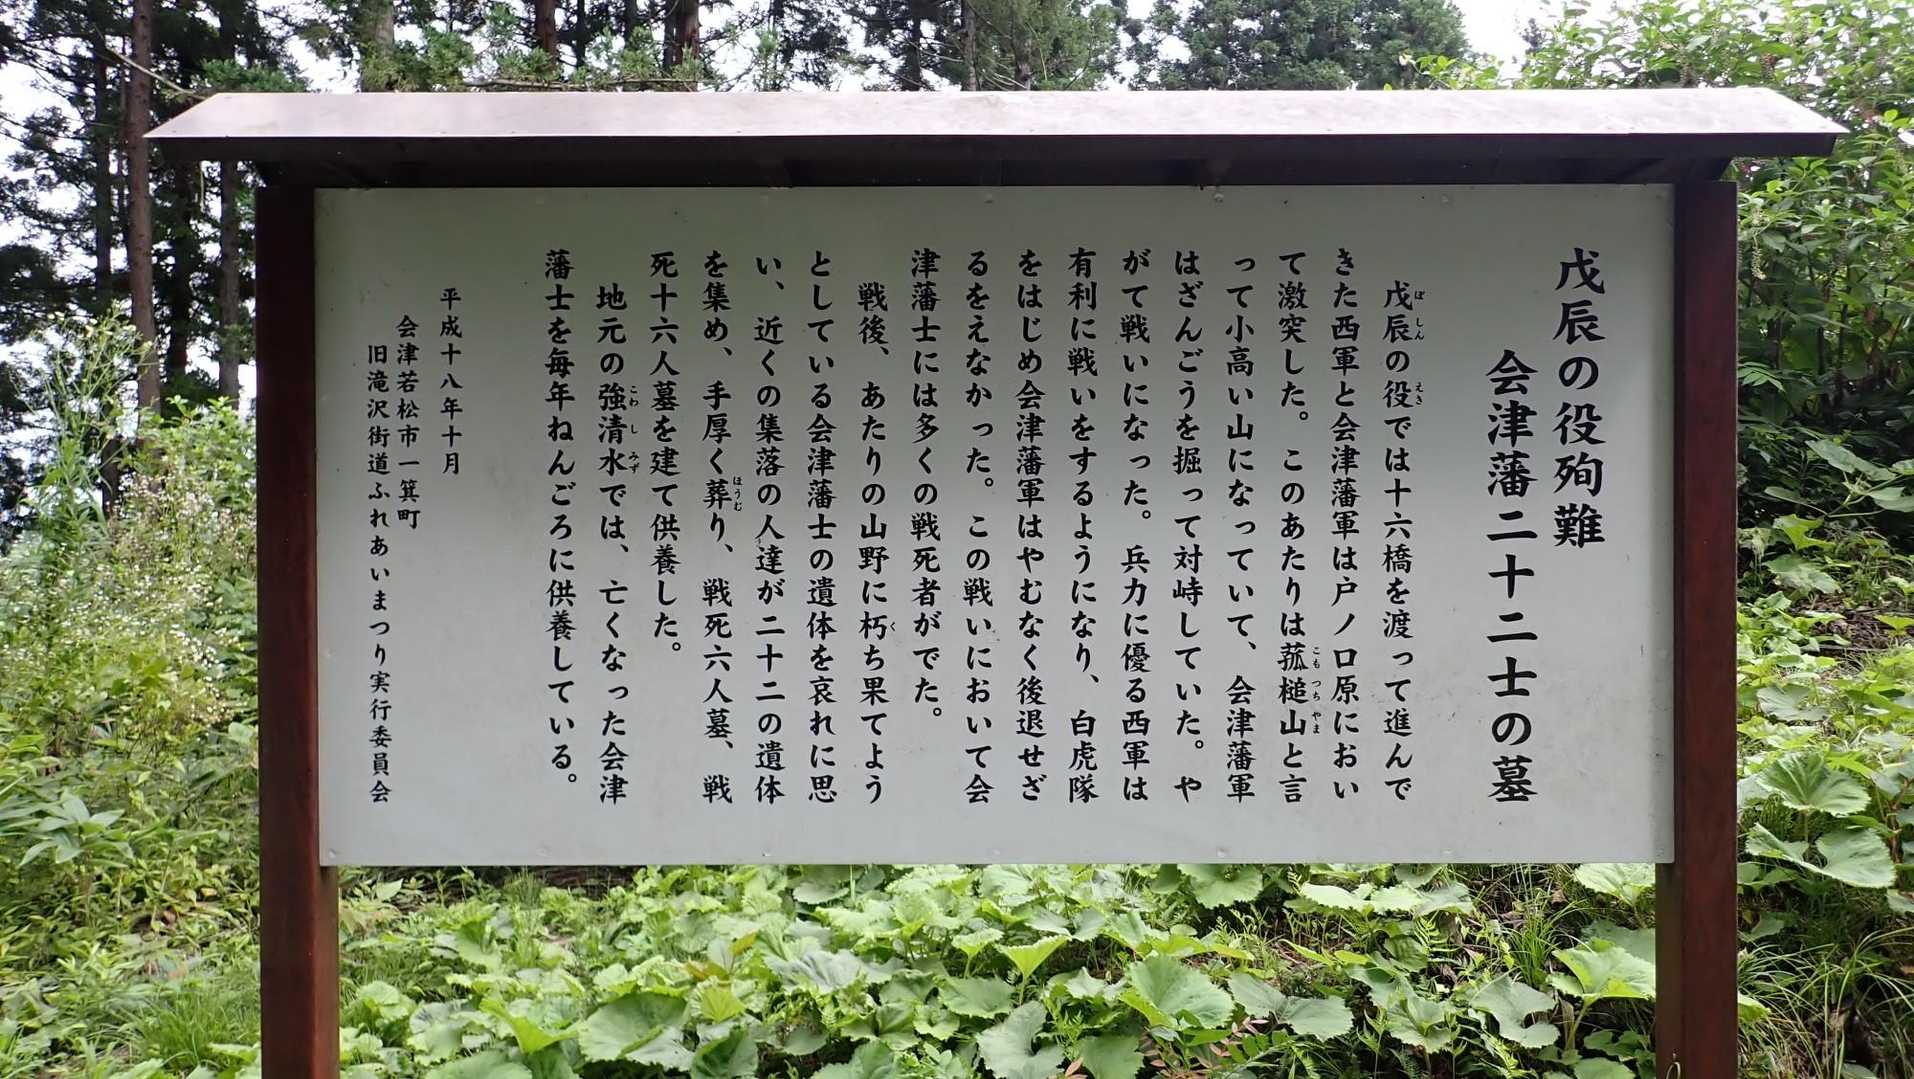 戊辰の役殉難
会津藩二十二士の墓
戊辰の役では十六橋を渡って進んで
きた西軍と会津藩軍は戸ノ口原におい
て激突した。このあたりは菰槌山と言
って小高い山になっていて、会津藩軍
はざんごうを掘って対峙していた。や
がて戦いになった。兵力に優る西軍は
有利に戦いをするようになり、白虎隊
をはじめ会津藩軍はやむなく後退せざ
るをえなかった。この戦いにおいて会
津藩士には多くの戦死者がでた。
戦後、あたりの山野に朽ち果てよう
としている会津藩士の遺体を哀れに思
い、近くの集落の人達が二十二の遺体
を集め、手厚く葬り、戦死六人墓、戦
死十六人墓を建て供養した。
地元の強清水では、亡くなった会津
藩士を毎年ねんごろに供養している。
平成十八年十月
会津若松市一箕町
旧滝沢街道ふれあいまつり実行委員会
ぼしん
えき
こもつちやま
く
ほうむ
こわしみず